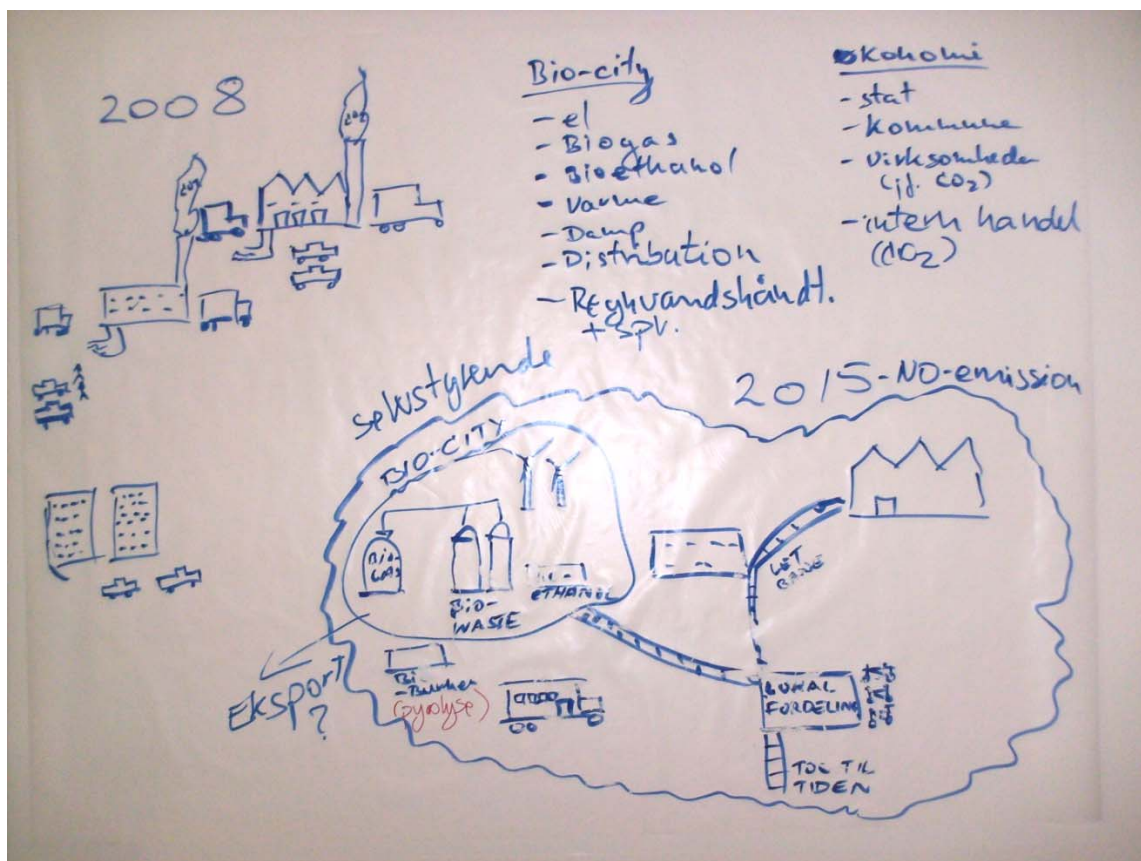 2008
CO2
CO2
Bio-city
- el
- Biogas
- Bioethanol
- Varme
- Damp
- Distribution
- Regnvandshåndt.
+ spv.
Økonomi
- stat
- Kommune
- virksomheder
(jf. CO2)
- intern handel
(CO2)
selvstyrende
2015-NO-emission
BIO-CITY
BIO-
GAS
BIO-
WASTE
ETHANOL
LET
BANE
Eksport
?
Bio
-Bunker
(pyrolyse)
LOKAL
FORDELING
TOG TIL
TIDEN